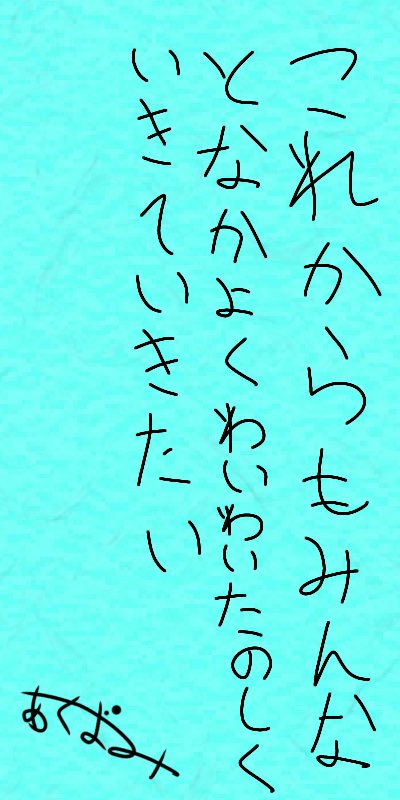 これからもみんな
となかよくわいわいたのしく
いきていきたい